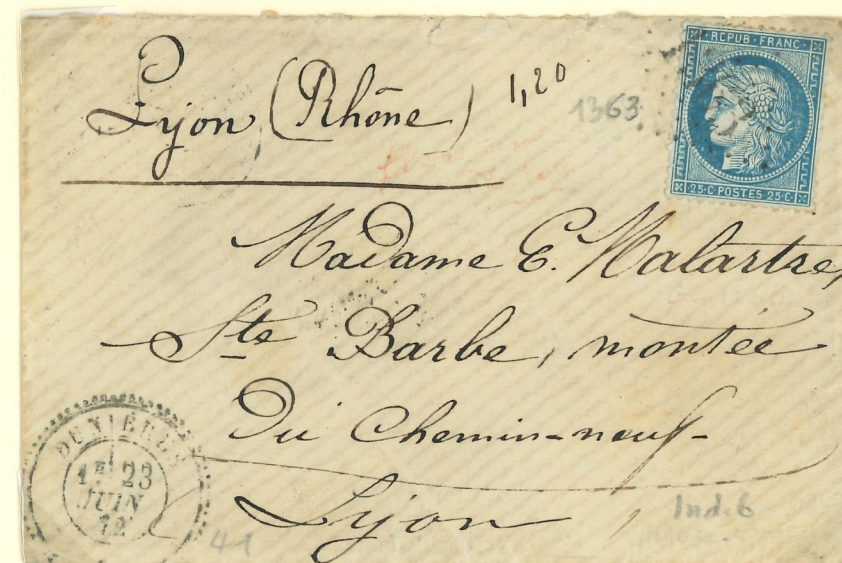 REPUB · FRANC ·
Lyon (Rhône) 1,20
1363
25 · C · POSTES · 25 · C
Madame E. Malartre,
Ste Barbe, montée
Du Chemin-neuf-
Lyon,
DUNIÈRES
1E 23
JUIN
72
41
Ind. 6